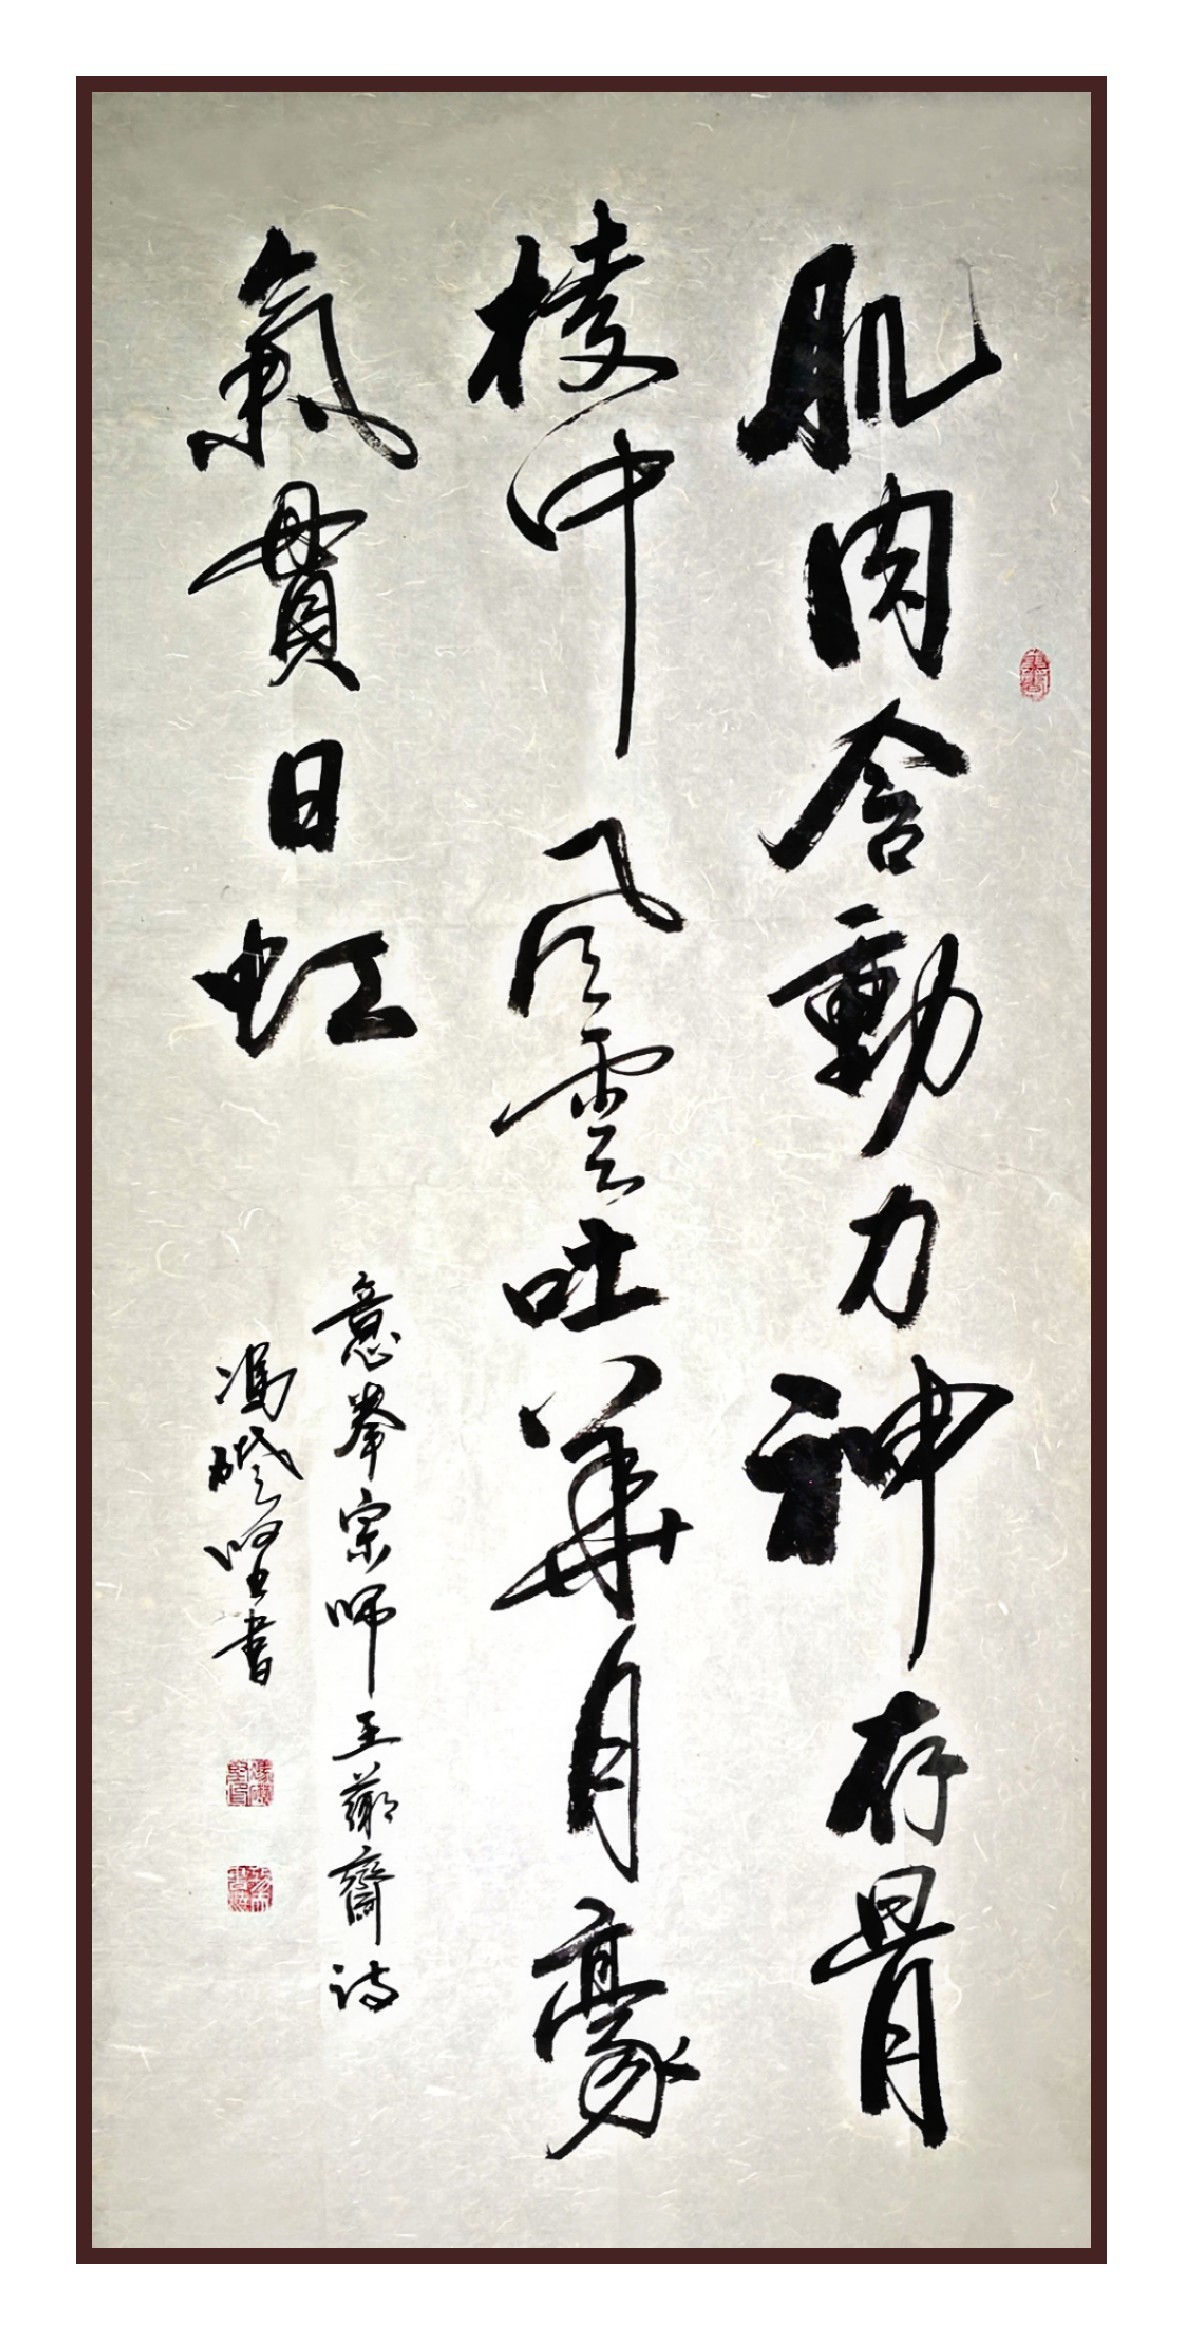 肌肉含動力神存骨
棱中風雲吐華月豪
氣貫日虹
意拳宗師王薌齋詩
馮 堅書